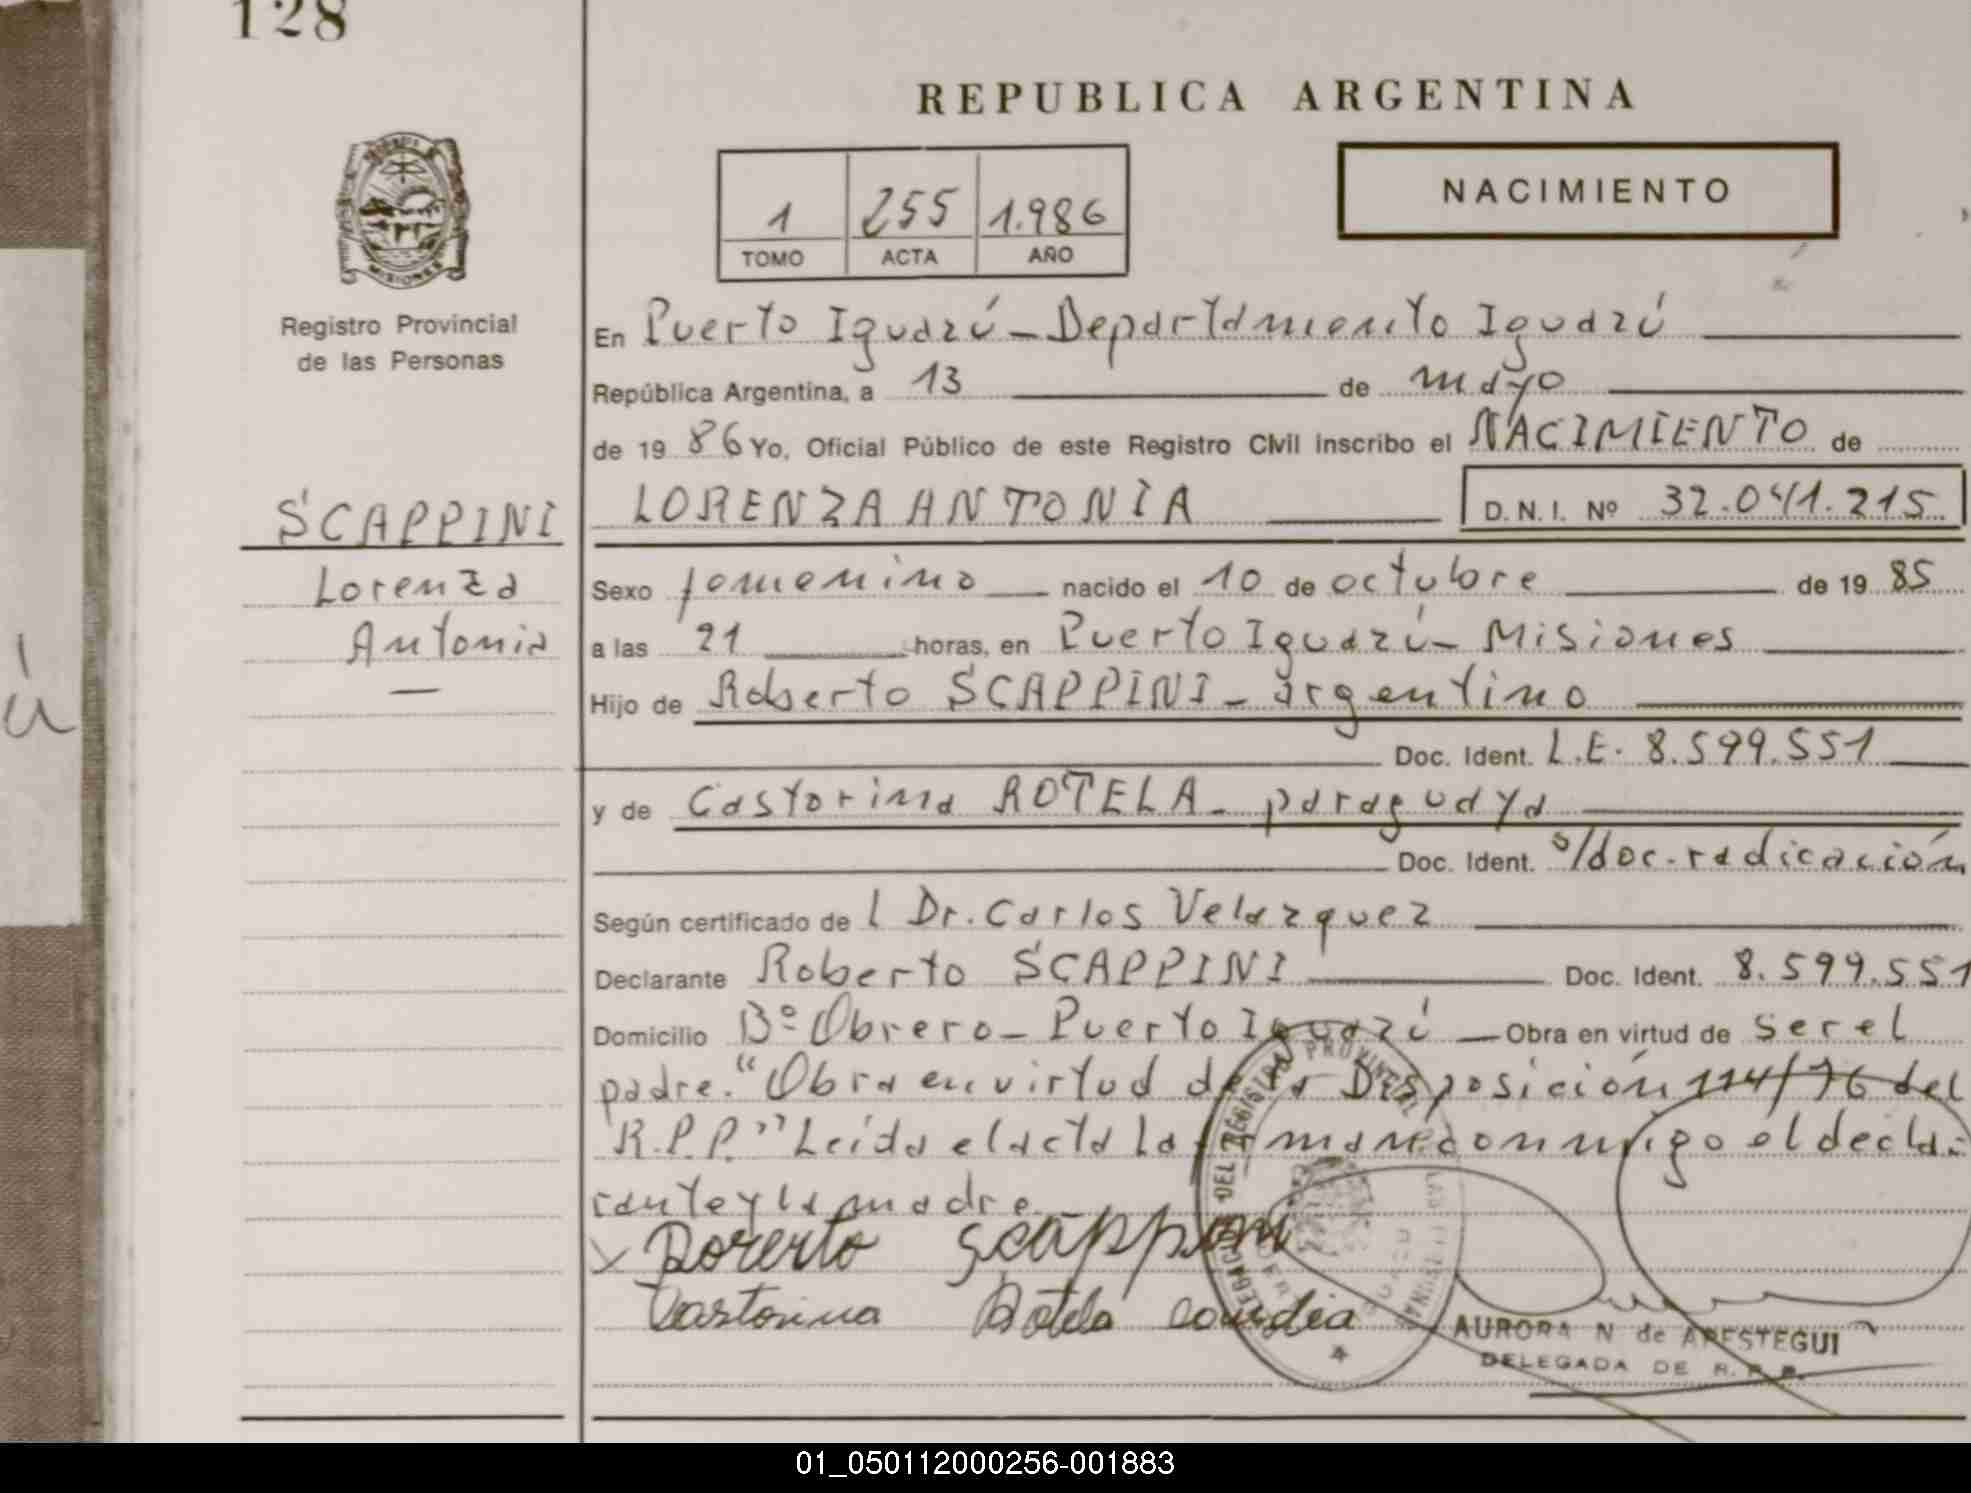 128
REPUBLICA ARGENTINA
NACIMIENTO
1 255 1.986
TOMO ACTA AÑO
MISIONES
Registro Provincial
de las Personas
En Puerto Iguazú - Departamento Iguazú
República Argentina, a 13 de mayo
de 19 86 Yo, Oficial Público de este Registro Civil inscribo el NACIMIENTO de
SCAPPINI
Lorenza
Antonia
LORENZA ANTONIA D. N. I. Nº 32.041.215
Sexo femenino nacido el 10 de octubre de 19 85
a las 21 horas, en Puerto Iguazú - Misiones
Hijo de Roberto SCAPPINI - argentino
Doc. Ident. L.E. 8.599.551
y de Castorina ROTELA - paraguaya
Doc. Ident. s/doc. radicación
Según certificado de l Dr. Carlos Velazquez
Declarante Roberto SCAPPINI Doc. Ident. 8.599.551
Domicilio Bº Obrero - Puerto Iguazú Obra en virtud de ser el
padre. "Obra en virtud de la Disposición 114/76 del
R.P.P." Leída el acta la firman conmigo el decla-
rante y la madre.
x Roberto Scappini
Castorina Rotela
AURORA N de APESTEGUI
DELEGADA DE R. P. P.
01_050112000256-001883